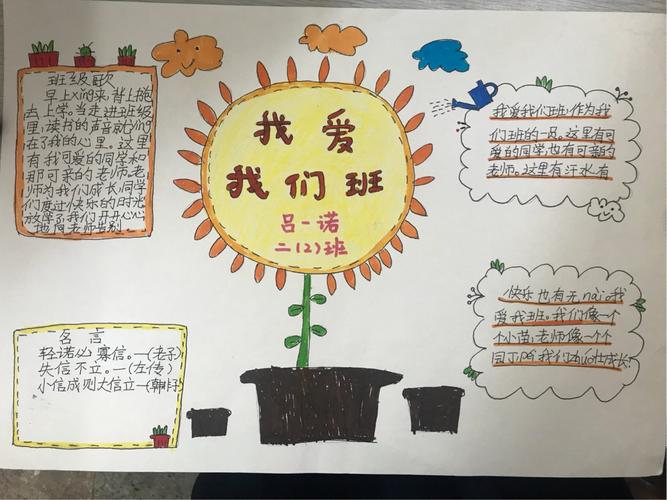 班级歌
早上xing来,背上抱
去上学。当走进班级
里,读书的声音就ying
在了我的心里。这里
有我可爱的同学和
那可亲的老师。老
师为我们成长,同学
们度过快乐的时光
放学了我们开开心心
地向老师告别
我爱
我们班
吕一诺
二(2)班
我爱我们班,作为我
们班的一员。这里有可
爱的同学,也有可亲的
老师。这里有汗水,有
快乐也有无nài。我
爱我班。我们像一个
个小苗,老师像一个个
园丁
我们
成长
名言
轻诺必寡信。—(老子)
失信不立。—(左传)
小信成则大信立—(韩非子)